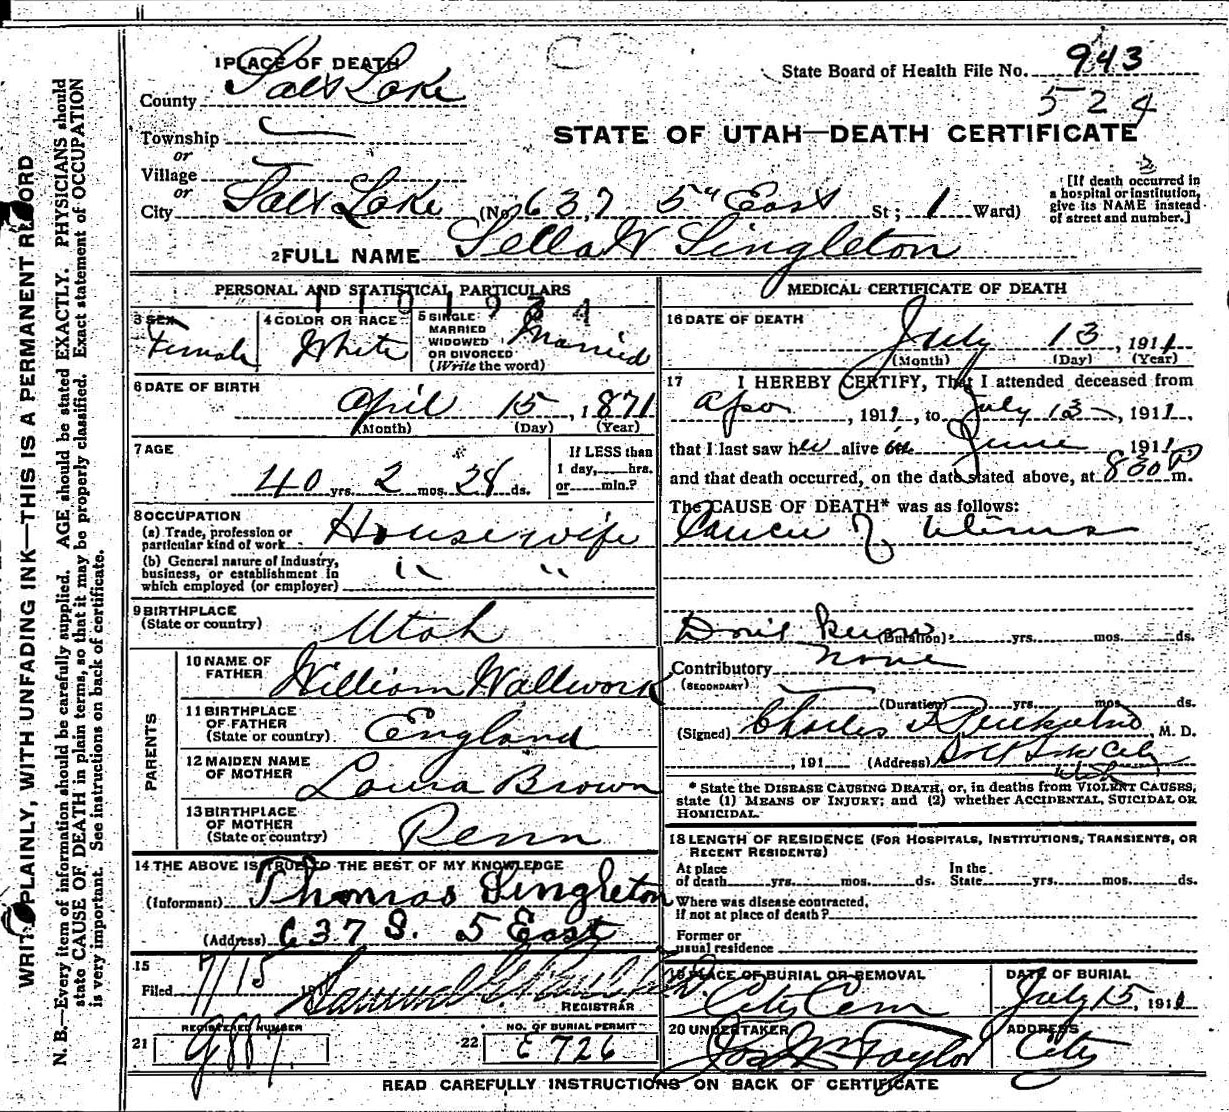 WRITE PLAINLY, WITH UNFADING INK—THIS IS A PERMANENT RECORD
N. B.—Every item of information should be carefully supplied. AGE should be stated EXACTLY. PHYSICIANS should
state CAUSE OF DEATH in plain terms, so that it may be properly classified. Exact statement of OCCUPATION
is very important. See instructions on back of certificate.
1 PLACE OF DEATH
State Board of Health File No. 943
County Salt Lake
524
Township
or
STATE OF UTAH—DEATH CERTIFICATE
Village
or
City Salt Lake (No. 637 5" East St; 1 Ward)
[If death occurred in
a hospital or institution,
give its NAME instead
of street and number.]
2 FULL NAME Lella W Singleton
PERSONAL AND STATISTICAL PARTICULARS
3 SEX
Female
4 COLOR OR RACE
White
5 SINGLE
MARRIED
WIDOWED
OR DIVORCED
(Write the word)
Married
6 DATE OF BIRTH
April 15, 1871
(Month) (Day) (Year)
7 AGE
40 yrs. 2 mos. 28 ds.
If LESS than
1 day, hrs.
or min.?
8 OCCUPATION
(a) Trade, profession or
particular kind of work Housewife
(b) General nature of industry,
business, or establishment in
which employed (or employer) " "
9 BIRTHPLACE
(State or country) Utah
PARENTS
10 NAME OF
FATHER William Wallwork
11 BIRTHPLACE
OF FATHER
(State or country) England
12 MAIDEN NAME
OF MOTHER Loura Brown
13 BIRTHPLACE
OF MOTHER
(State or country) Penn
14 THE ABOVE IS TRUE TO THE BEST OF MY KNOWLEDGE
(Informant) Thomas Singleton
(Address) 637 S. 5 East
15
Filed 7/15 191
REGISTRAR
21 REGISTERED NUMBER
9887
22 NO. OF BURIAL PERMIT
E 726
MEDICAL CERTIFICATE OF DEATH
16 DATE OF DEATH
July 13, 1911
(Month) (Day) (Year)
17 I HEREBY CERTIFY, That I attended deceased from
, 1911, to July 13, 1911,
that I last saw her alive in June 1911
and that death occurred, on the date stated above, at 8 30 P m.
The CAUSE OF DEATH* was as follows:
Cancer of Uterus
Don't know (Duration) yrs. mos. ds.
Contributory none
(SECONDARY)
(Duration) yrs. mos. ds.
(Signed) Charles M. D.
, 191 (Address) Salt Lake City
Utah
* State the DISEASE CAUSING DEATH, or, in deaths from VIOLENT CAUSES,
state (1) MEANS OF INJURY; and (2) whether ACCIDENTAL, SUICIDAL OR
HOMICIDAL.
18 LENGTH OF RESIDENCE (FOR HOSPITALS, INSTITUTIONS, TRANSIENTS, OR
RECENT RESIDENTS)
At place
of death yrs. mos. ds.
In the
State yrs. mos. ds.
Where was disease contracted,
If not at place of death?
Former or
usual residence
19 PLACE OF BURIAL OR REMOVAL
City Cem
DATE OF BURIAL
July 15, 1911
20 UNDERTAKER
Jos Wm Taylor
ADDRESS
City
READ CAREFULLY INSTRUCTIONS ON BACK OF CERTIFICATE